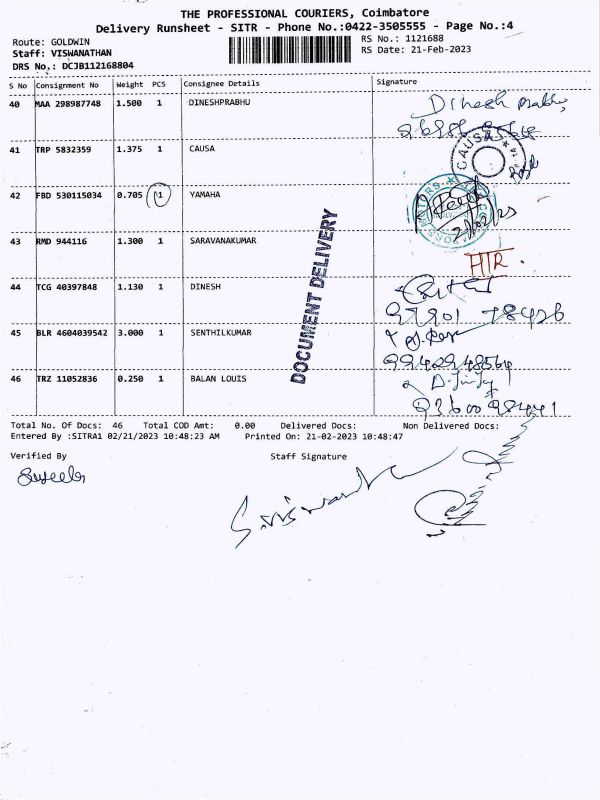 THE PROFESSIONAL COURIERS, Coimbatore
Delivery Runsheet - SITR - Phone No.:0422-3505555 - Page No.:4
Route: GOLDWIN
RS No.: 1121688
Staff: VISWANATHAN
RS Date: 21-Feb-2023
DRS No.: DCJB112168804
S No Consignment No Weight PCS Consignee Details Signature
40 MAA 298987748 1.500 1 DINESHPRABHU Dinesh Prabhu,
41 TRP 5832359 1.375 1 CAUSA
CAUSA
42 FBD 530115034 0.705 1 YAMAHA
21/02/23
43 RMD 944116 1.300 1 SARAVANAKUMAR HTR.
DOCUMENT DELIVERY
44 TCG 40397848 1.130 1 DINESH
97901 78426
45 BLR 4604039542 3.000 1 SENTHILKUMAR
9942948564
46 TRZ 11052836 0.250 1 BALAN LOUIS
93600 98441
Total No. Of Docs: 46 Total COD Amt: 0.00 Delivered Docs: Non Delivered Docs:
Entered By :SITRA1 02/21/2023 10:48:23 AM Printed On: 21-02-2023 10:48:47
Verified By Staff Signature